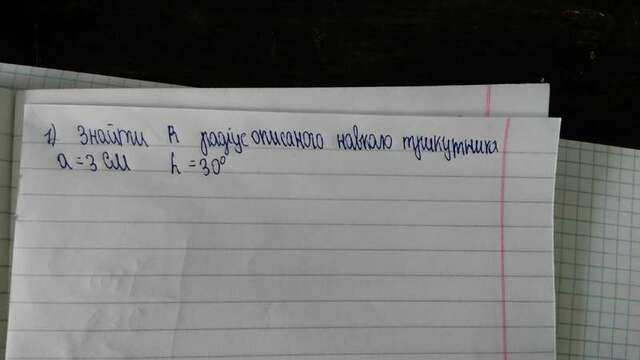 1) Знайти R радіус описаного навколо трикутника
a = 3 см α = 30°